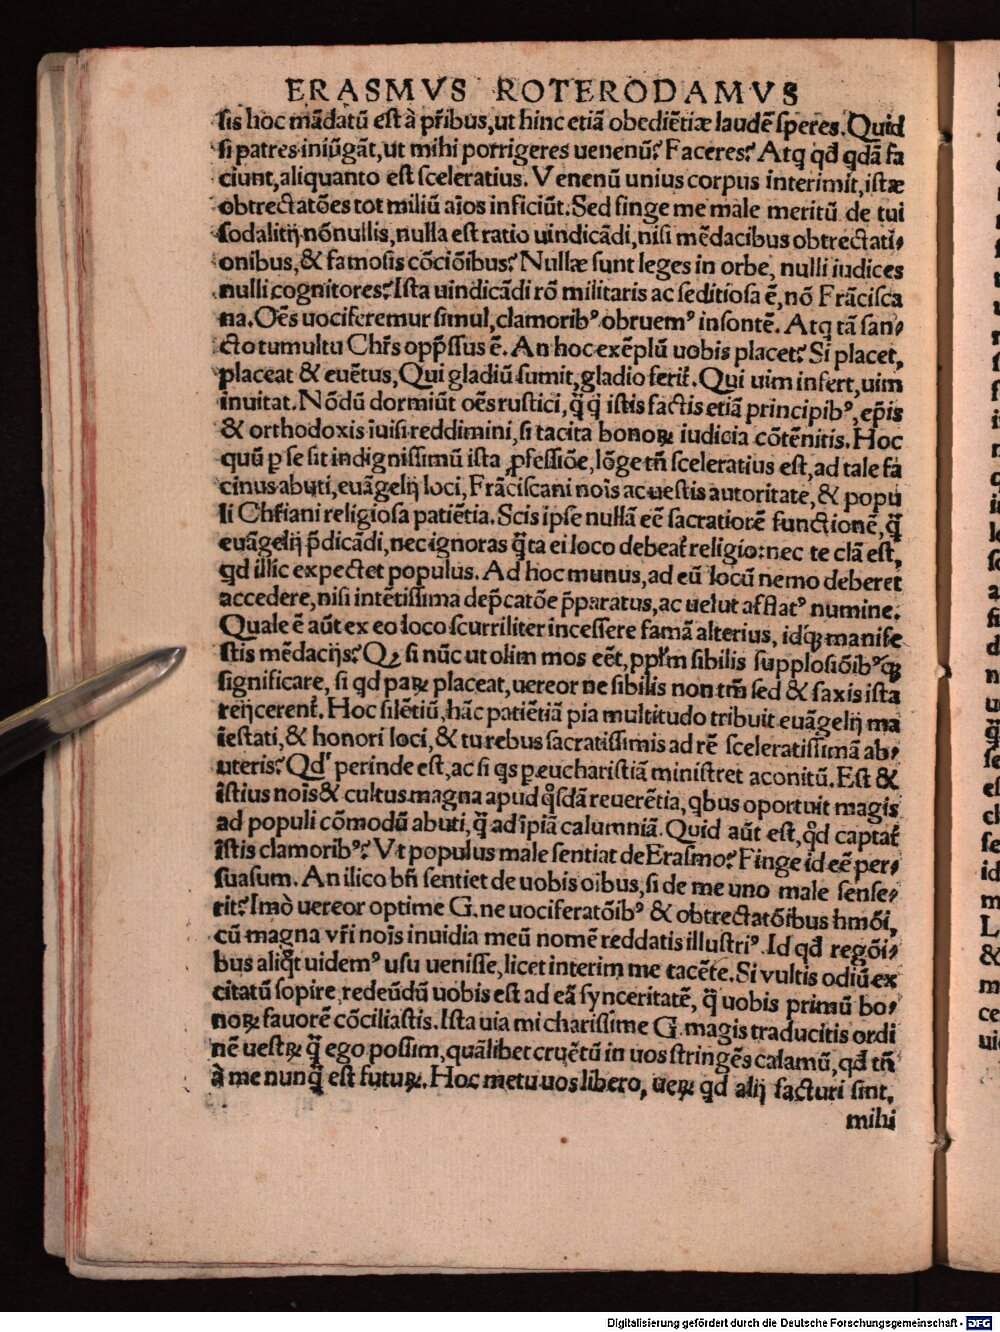 ERASMVS ROTERODAMVS
sis hoc mãdatũ est à p̃ribus, ut hinc etiã obediẽtiæ laudẽ speres. Quid
si patres iniũgãt, ut mihi porrigeres uenenũ? Faceres? Atq; qđ qdã fa
ciunt, aliquanto est sceleratius. Venenũ unius corpus interimit, istæ
obtrectatões tot miliũ aĩos inficiũt. Sed finge me male meritũ de tui
sodalitij nõnullis, nulla est ratio uindicãdi, nisi mẽdacibus obtrectati-
onibus, & famosis cõciõibus? Nullæ sunt leges in orbe, nulli iudices
nulli cognitores? Ista uindicãdi rõ militaris ac seditiosa ẽ, nõ Frãcisca
na. Oẽs uociferemur simul, clamoribꝰ obruemꝰ insontẽ. Atq; tã san-
cto tumultu Chr̃s opp̃ssus ẽ. An hoc exẽplũ uobis placet? Si placet,
placeat & euẽtus, Qui gladiũ sumit, gladio ferit̃. Qui uim infert, uim
inuitat. Nõdũ dormiũt oẽs rustici, q̃q̃ istis factis etiã principibꝰ, ep̃is
& orthodoxis iuisi reddimini, si tacita bonoꝝ iudicia cõtẽnitis. Hoc
quũ ꝑ se sit indignissimũ ista ꝓfessiõe, lõge tñ sceleratius est, ad tale fa
cinus abuti, euãgelij loci, Frãciscani noĩs ac uestis autoritate, & popu
li Chr̃iani religiosa patiẽtia. Scis ipse nullã eẽ sacratiorẽ functionẽ, q̃
euãgelij p̃dicãdi, nec ignoras q̃ta ei loco debeat̃ religio: nec te clã est,
qd illic expectet populus. Ad hoc munus, ad eũ locũ nemo deberet
accedere, nisi intẽtissima dep̃catõe p̃paratus, ac uelut afflatꝰ numine.
Quale ẽ aũt ex eo loco scurriliter incessere famã alterius, idq; manife
stis mẽdacijs? Qꝫ si nũc ut olim mos eẽt, pp̃lm sibilis supplosiõibꝰq;
significare, si qd paꝝ placeat, uereor ne sibilis non tm̃ sed & saxis ista
reijcerent̃. Hoc silẽtiũ, hãc patiẽtiã pia multitudo tribuit euãgelij ma
iestati, & honori loci, & tu rebus sacratissimis ad rẽ sceleratissimã ab-
uteris? Qd' perinde est, ac si qs ꝑ eucharistiã ministret aconitũ. Est &
istius noĩs & cultus magna apud q̊sdã reuerẽtia, qbus oportuit magis
ad populi cõmodũ abuti, q̃ ad ĩpiã calumniã. Quid aũt est, q̊d captat̃
istis clamoribꝰ? Vt populus male sentiat de Erasmo? Finge id eẽ per-
suasum. An ilico bñ sentiet de uobis oĩbus, si de me uno male sense-
rit? Imò uereor optime G. ne uociferatõibꝰ & obtrectatõibus hmõi,
cũ magna vr̃i noĩs inuidia meũ nomẽ reddatis illustriꝰ. Id qđ regõi-
bus aliq̃t uidemꝰ usu uenisse, licet interim me tacẽte. Si vultis odiũ ex
citatũ sopire, redeũdũ uobis est ad eã synceritatẽ, q̃ uobis primũ bo-
noꝝ fauorẽ cõciliastis. Ista uia mi charissime G. magis traducitis ordi
nẽ uestꝝ q̃ ego possim, quãlibet cruẽtũ in uos stringẽs calamũ, qđ tñ
à me nunq̃ est futuꝝ. Hoc metu uos libero, ueꝝ qd alij facturi sint,
mihi
Digitalisierung gefördert durch die Deutsche Forschungsgemeinschaft - DFG